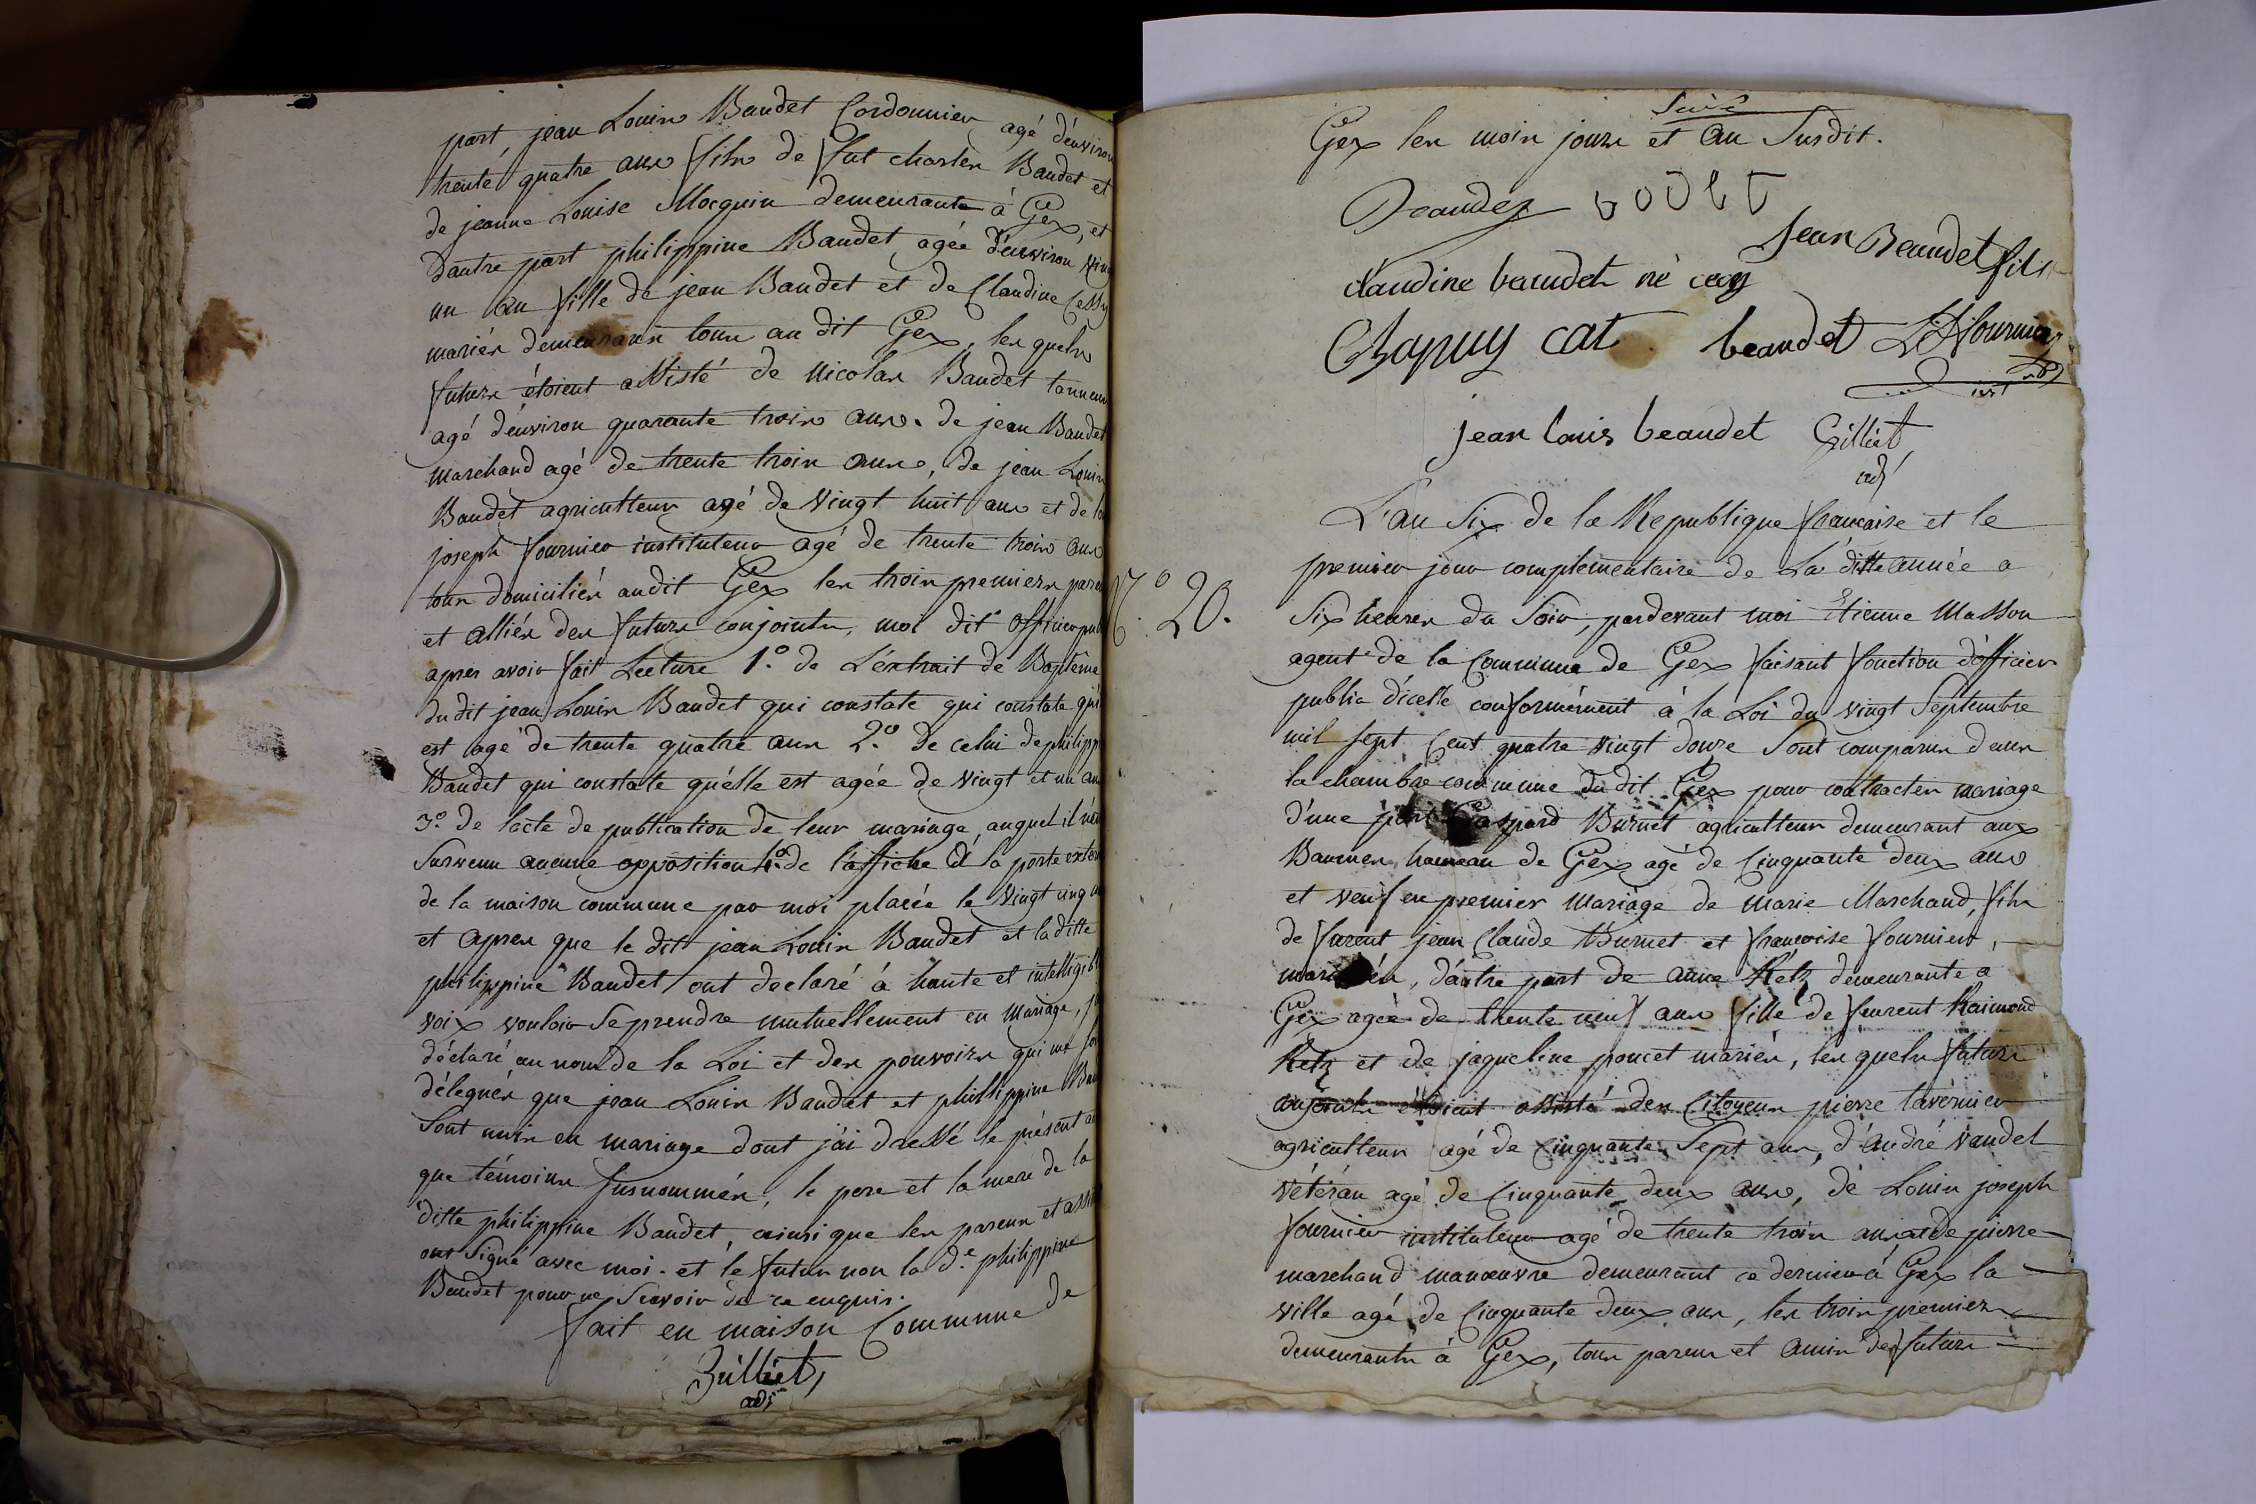 part, jean Louis Baudet Cordonnier agé d'environ
trente quatre ans fils de fut charles Baudet et
de jeanne Louise Mocquin demeurante à Gex, et
dautre part philippine Baudet agée d'environ vin
un an fille de jean Baudet et de Claudine Cessy
mariés demeurans tous au dit Gex, les quels
futurs étoient assisté de Nicolas Baudet tanneur
agé d'environ quarante trois ans. de jean Baudet
marchand agé de trente trois ans, de jean Louis
Baudet agriculteur agé de vingt huit ans et de
joseph fournier instituteur agé de trente trois ans
tous domiciliés audit Gex les trois premiers paren
et alliés des futurs conjoints, moi dit officier pub
apres avoir fait Lecture 1.° de L'éxtrait de Baptême
du dit jean Louis Baudet qui constate qui constate qu'i
est agé de trente quatre ans 2.° de celui de philipp
Baudet qui constate qu'élle est agée de vingt et un an
3.° de lacte de publication de leur mariage, auquel il n'es
survenu aucune opposition 4.° de l'affiche à la porte extér
de la maison commune par moi placée le vingt cinq
et apres que le dit jean Louis Baudet et la ditte
philippine Baudet ont declaré à haute et intelligibl
voix vouloir se prendre mutuellement en mariage, j'a
déclaré au nom de la Loi et des pouvoirs qui me so
délegués que jean Louis Baudet et philippine Bau
sont unis en mariage dont j'ai dressé le présent a
que témoins susnommés, le pere et la mere de la
ditte philippine Baudet, ainsi que les parens et assis
ont signé avec moi. et le futur non la d.e philippine
Baudet pour ne scavoir de ce enquis.
fait en maison Commune de
Gilliet,
adj
suite
Gex les mois jours et an susdit.
Beaudez
Jean Beaudet fils
claudine beaudet né cecy
Chapuy cat beaudet L J fournier
inst
jean louis beaudet Gilliet,
adj
L'an six de la Republique francaise et le
premier jour complementaire de La ditte année a
N.° 20. six heures du soir, pardevant moi Etienne Masson
agent de la Commune de Gex faisant fonction d'officier
public d'icelle conformément à la Loi du vingt Septembre
mil sept cent quatre vingt douze sont comparus dans
la chambre commune du dit Gex pour contracter mariage
d'une part Gaspard Burnet agriculteur demeurant aux
Baumes hameau de Gex agé de Cinquante deux ans
et veuf en premier mariage de marie Marchand, fils
de furent jean Claude Burnet et francoise fournier,
mariés, d'autre part de anne Retz demeurante a
Gex agée de trente neuf ans fille de furent Raimond
Retz et de jaqueline poncet mariés, les quels futurs
conjoints étoient assisté des Citoyens pierre tavernier
agriculteur agé de Cinquante Sept ans, d'andré vandel
vétéran agé de Cinquante deux ans, de Louis joseph
fournier instituteur agé de trente trois ans et de pierre
marchand manoeuvre demeurant ce dernier à Gex la
ville agé de Cinquante deux ans, les trois premiers
demeurants à Gex, tous parens et amis des futurs